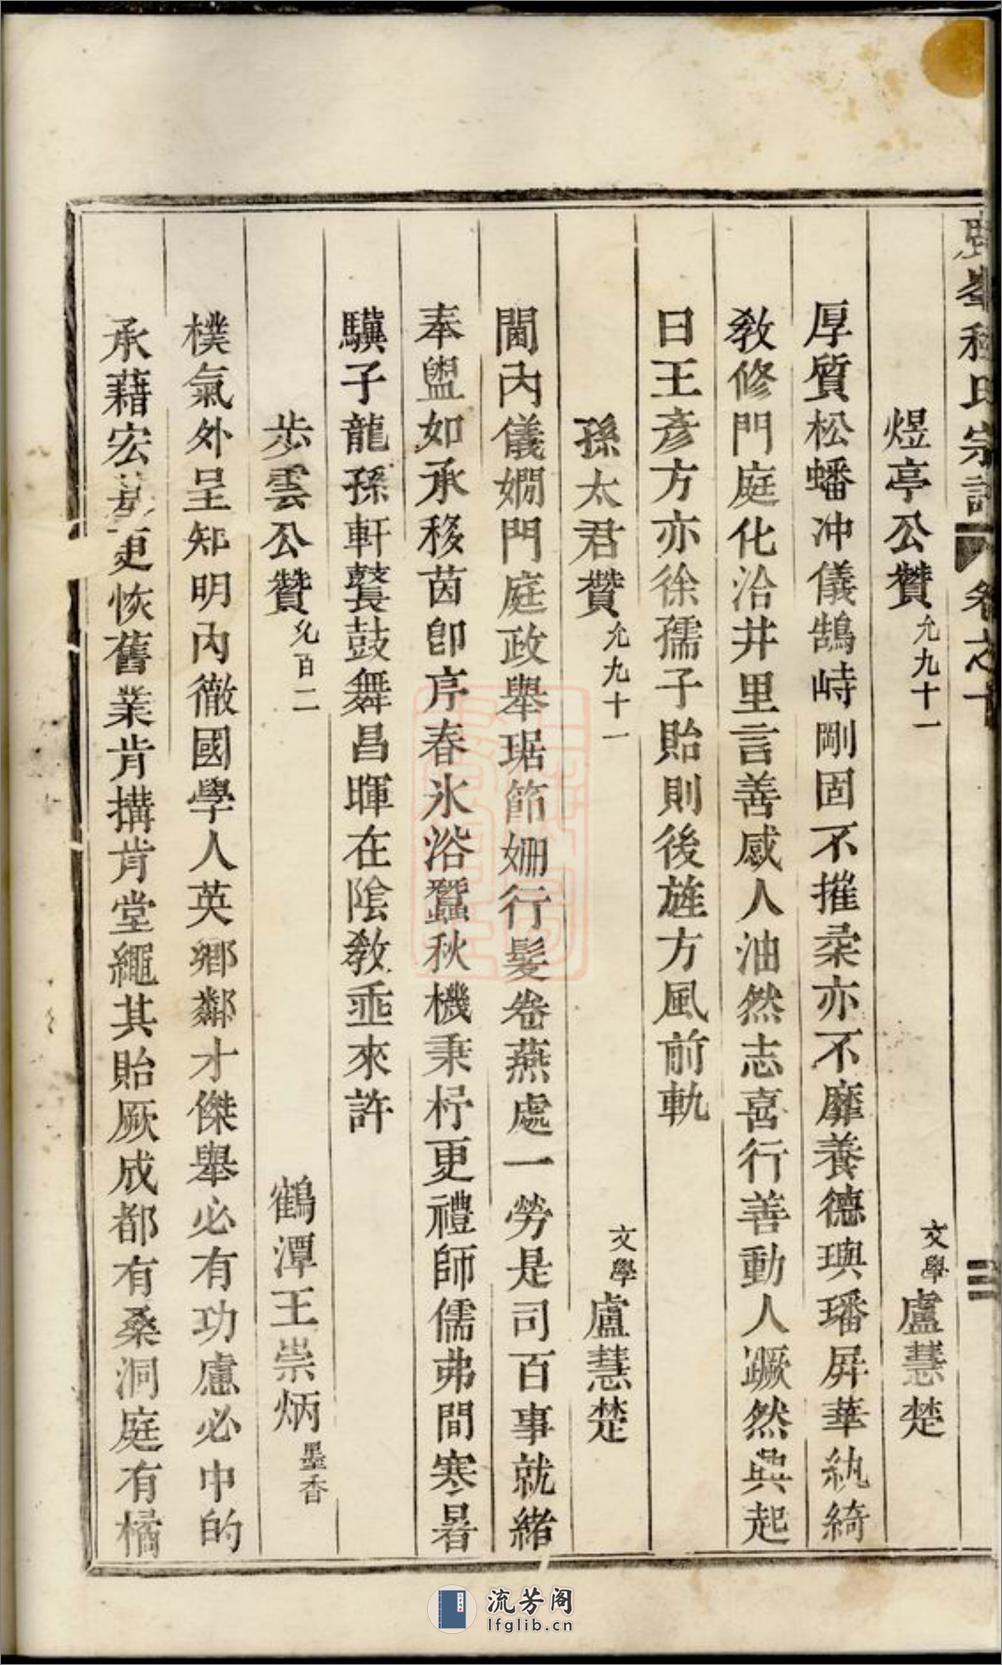 峯程氏宗譜 卷之十 三
煜亭公贊 允九十一 文學 盧慧楚
厚質松蟠冲儀鵠峙剛固不摧柔亦不靡養德璵璠屏華紈綺
敎修門庭化洽井里言善感人油然志喜行善動人蹶然興起
曰王彥方亦徐孺子貽則後旌方風前軌
孫太君贊 允九十一 文學 盧慧楚
閫內儀嫺門庭政舉琚節姍行髮卷燕處一勞是司百事就緒
奉盥如承移茵卽序春氷浴蠶秋機秉杼更禮師儒弗間寒暑
驥子龍孫軒鼚鼓舞昌暉在陰敎垂來許
步雲公贊 允百二 鶴潭王崇炳 墨香
樸氣外呈知明內徹國學人英鄉鄰才傑舉必有功慮必中的
承藉宏更恢舊業肯搆肯堂繩其貽厥成都有桑洞庭有橘
流芳阁
lfglib.cn